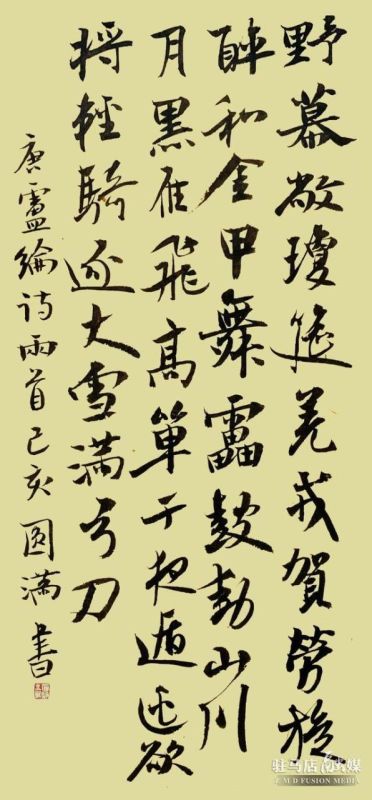 野幕敞瓊筵羌戎賀勞旋
醉和金甲舞靁鼓動山川
月黑雁飛高單于夜遁逃欲
將輕騎逐大雪滿弓刀
唐盧綸詩兩首己亥圆滿書
驻马店融媒
Z M D FUSION MEDIA